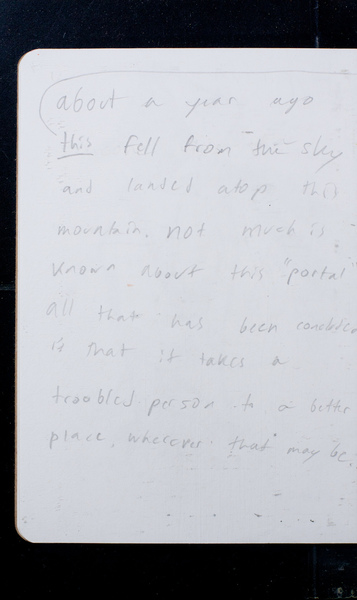 about a year ago
this fell from the sky
and landed atop this
mountain. not much is
known about this "portal"
all that has been
is that it takes a
troubled person to a better
place, wherever that may be.